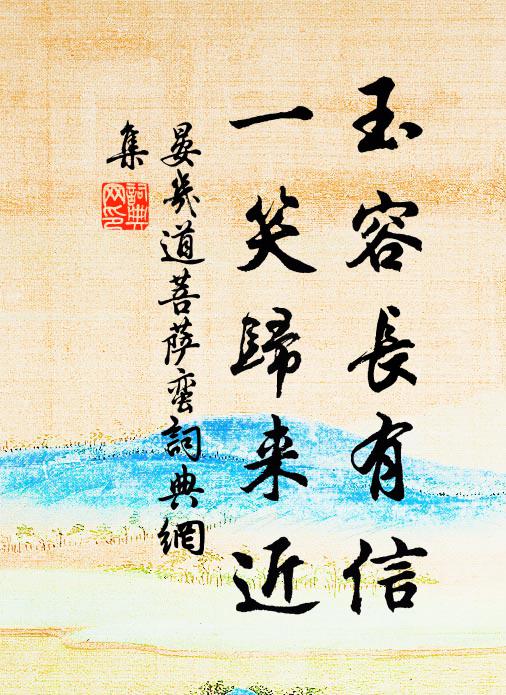 玉容長有信
一笑歸来近
晏幾道菩薩蠻詞典網
集
詞典網印